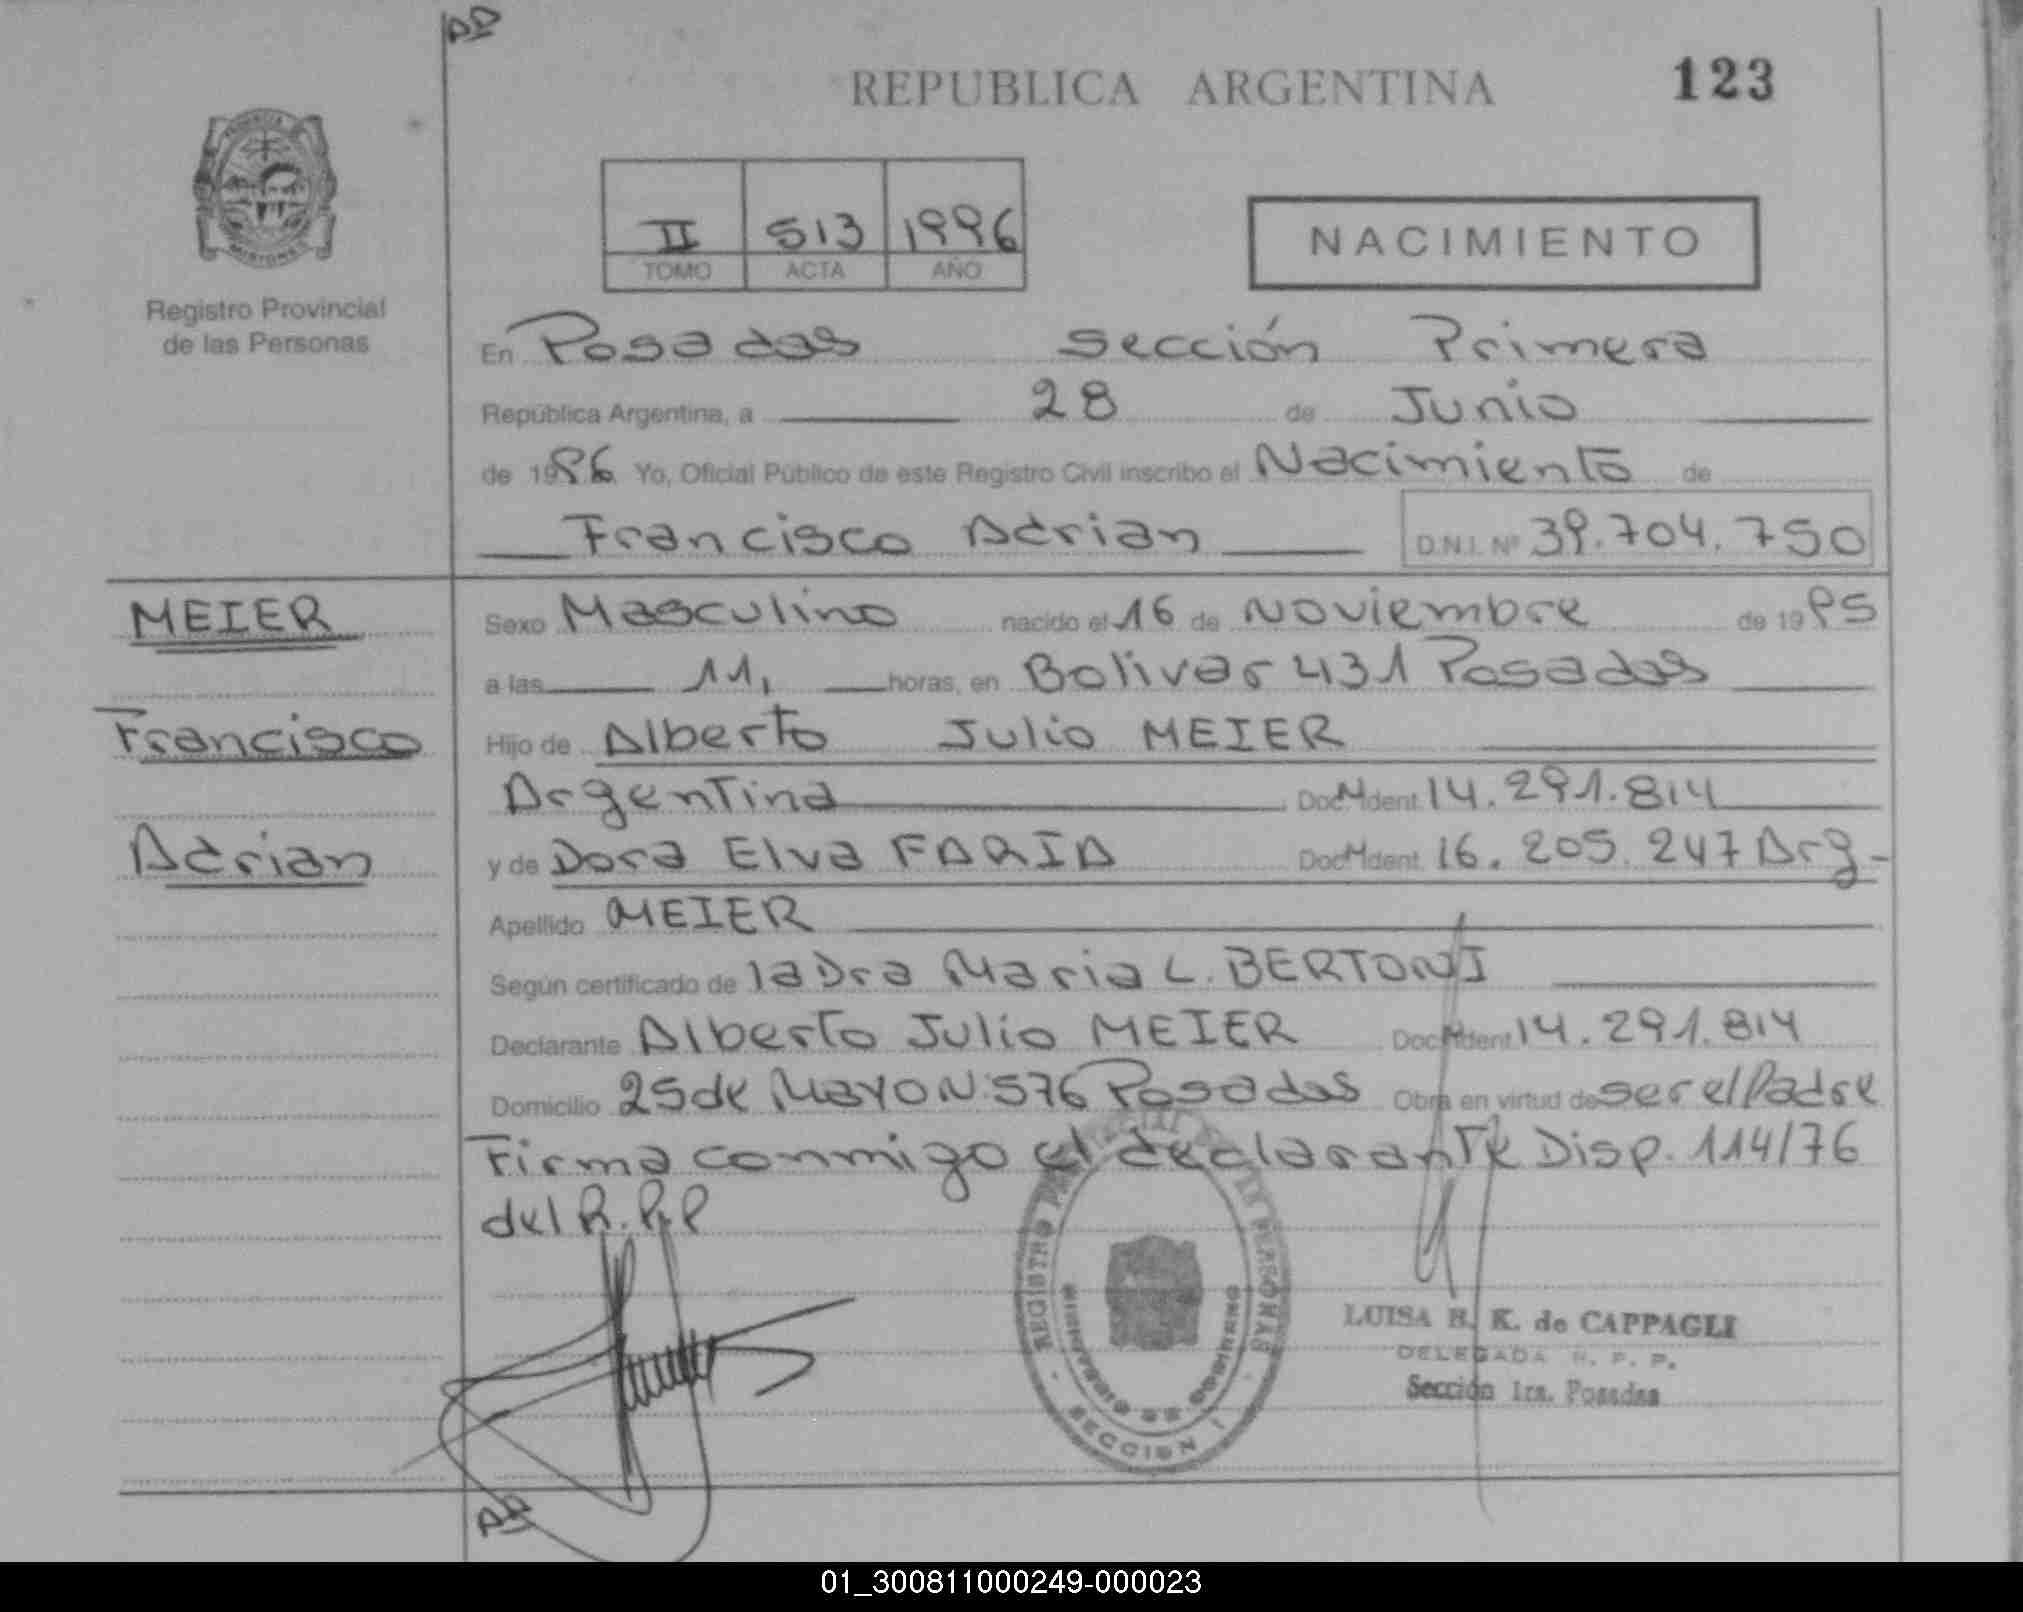 REPUBLICA ARGENTINA
123
II 513 1996
TOMO ACTA AÑO
NACIMIENTO
Registro Provincial
de las Personas
En Posadas sección Primera
República Argentina, a 28 de Junio
de 1996 Yo, Oficial Público de este Registro Civil inscribo el Nacimiento de
Francisco Adrian D.N.I. Nº 39.704.750
MEIER
Francisco
Adrian
Sexo Masculino nacido el 16 de Noviembre de 1995
a las 11, horas, en Bolivar 431 Posadas
Hijo de Alberto Julio MEIER
Argentina Doc. Ident. 14.291.814
y de Dora Elva FARIA Doc. Ident. 16.205.247 Arg-
Apellido MEIER
Según certificado de la Dra Maria L. BERTONI
Declarante Alberto Julio MEIER Doc. Ident. 14.291.814
Domicilio 25 de Mayo N. 576 Posadas Obra en virtud de ser el Padre
Firma conmigo el declarante Disp. 114/76
del R.P.P
REGISTRO PROVINCIAL DE LAS PERSONAS
MINISTERIO DE GOBIERNO
SECCION I
LUISA B. K. de CAPPAGLI
DELEGADA R. P. P.
Sección 1ra. Posadas
01_300811000249-000023